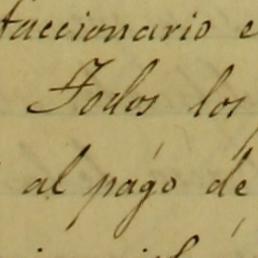 faccionario e
Todos los
al pago de